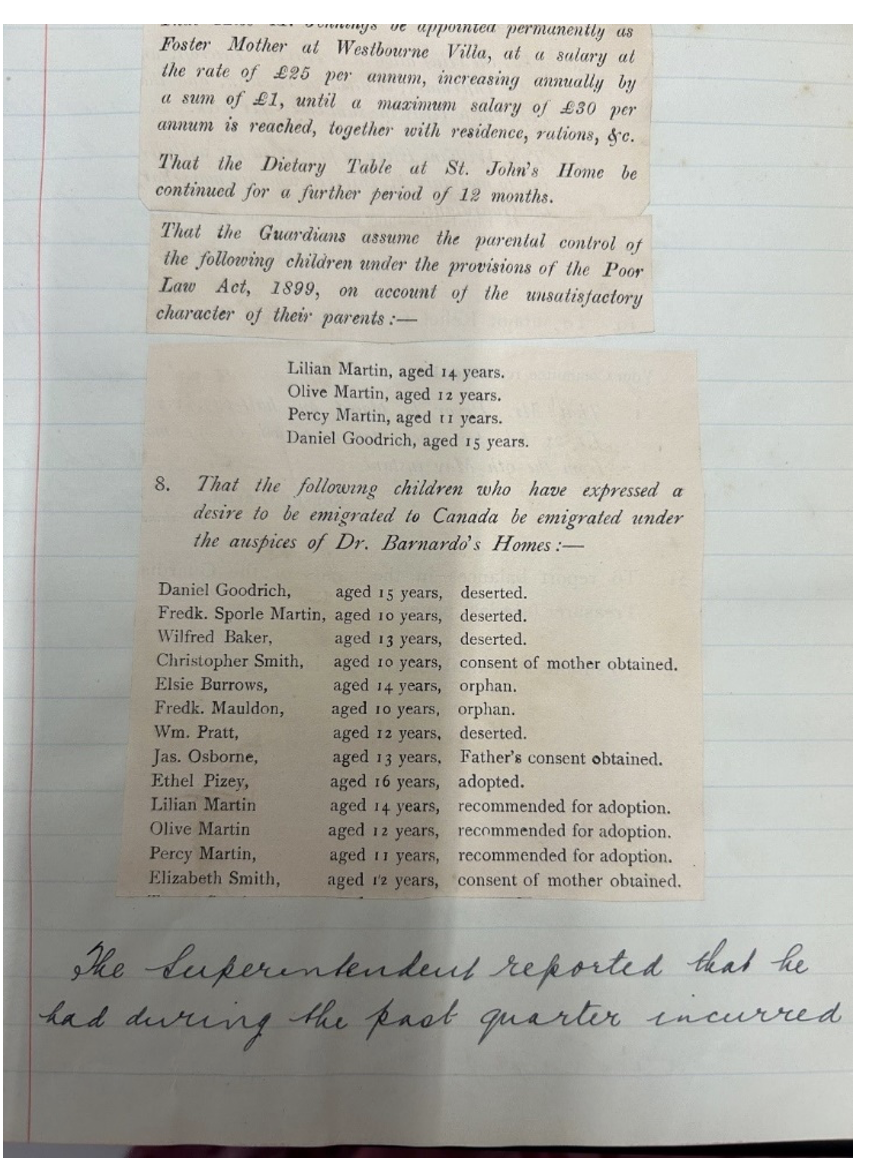 be appointed permanently as
Foster Mother at Westbourne Villa, at a salary at
the rate of £25 per annum, increasing annually by
a sum of £1, until a maximum salary of £30 per
annum is reached, together with residence, rations, &c.
That the Dietary Table at St. John's Home be
continued for a further period of 12 months.
That the Guardians assume the parental control of
the following children under the provisions of the Poor
Law Act, 1899, on account of the unsatisfactory
character of their parents :—
Lilian Martin, aged 14 years.
Olive Martin, aged 12 years.
Percy Martin, aged 11 years.
Daniel Goodrich, aged 15 years.
8. That the following children who have expressed a
desire to be emigrated to Canada be emigrated under
the auspices of Dr. Barnardo's Homes :—
Daniel Goodrich, aged 15 years, deserted.
Fredk. Sporle Martin, aged 10 years, deserted.
Wilfred Baker, aged 13 years, deserted.
Christopher Smith, aged 10 years, consent of mother obtained.
Elsie Burrows, aged 14 years, orphan.
Fredk. Mauldon, aged 10 years, orphan.
Wm. Pratt, aged 12 years, deserted.
Jas. Osborne, aged 13 years, Father's consent obtained.
Ethel Pizey, aged 16 years, adopted.
Lilian Martin aged 14 years, recommended for adoption.
Olive Martin aged 12 years, recommended for adoption.
Percy Martin, aged 11 years, recommended for adoption.
Elizabeth Smith, aged 12 years, consent of mother obtained.
The Superintendent reported that he
had during the past quarter incurred